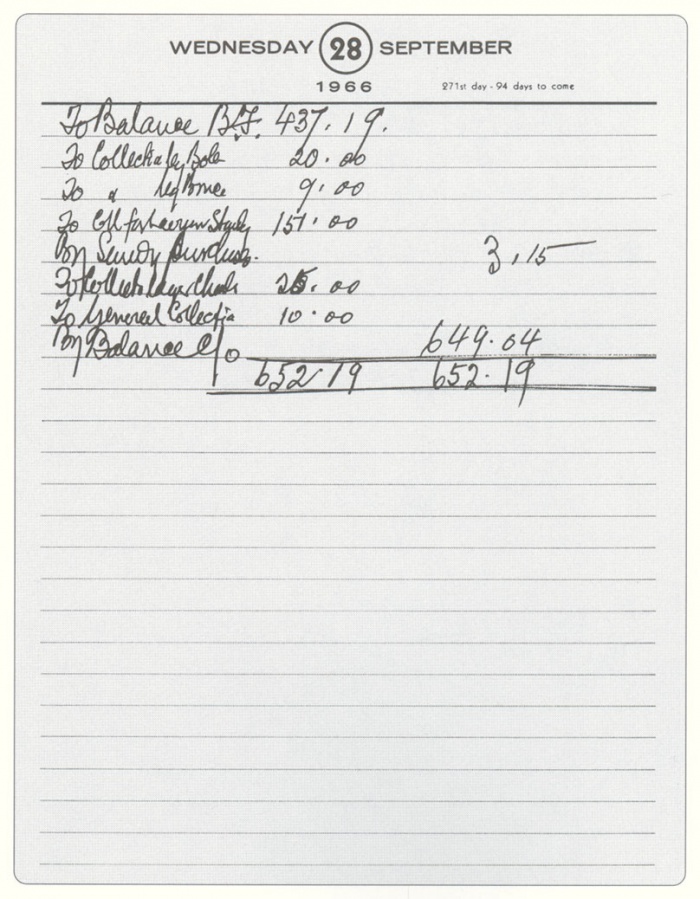 WEDNESDAY 28 SEPTEMBER
1966 271st day - 94 days to come
To Balance B.F. 437.19.
To Collection by 20.00
To " by 9.00
To 151.00
By Sundry Purchases. 3.15
To Collection 25.00
To General Collection 10.00
By Balance C/o 649.04
652.19 652.19